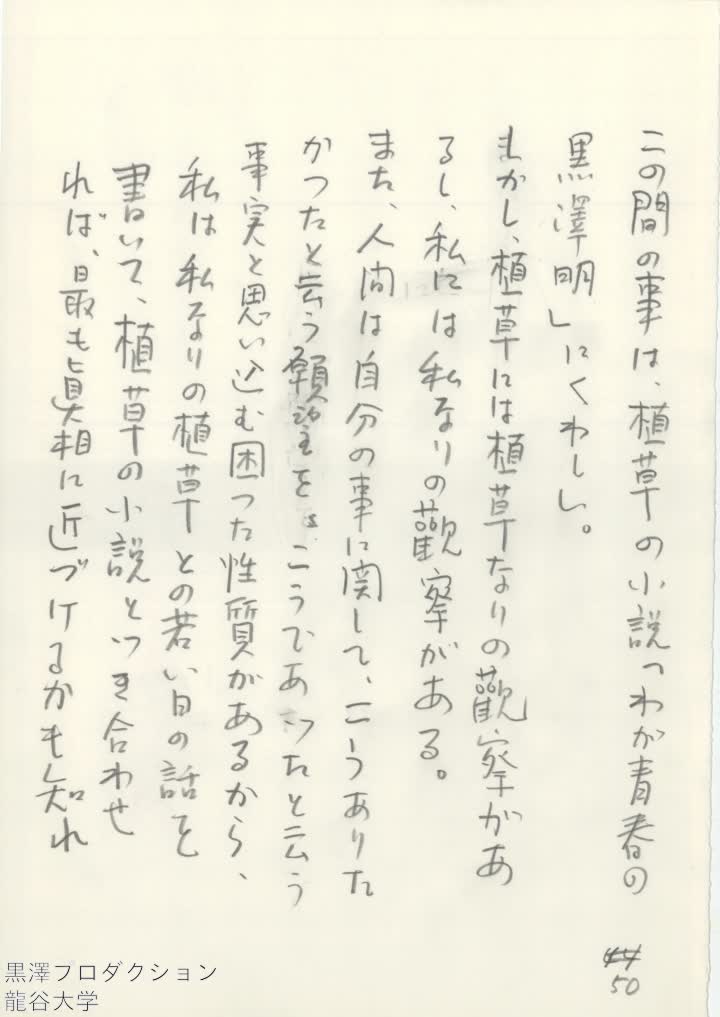 この間の事は、植草の小説「わが青春の
黒澤明」にくわしい。
しかし、植草には植草なりの觀察があ
るし、私には私なりの觀察がある。
また、人間は自分の事に関して、こうありた
かつたと云う願望を、こうであつたと云う
事実と思い込む困つた性質があるから、
私は私なりの植草との若い日の話を
書いて、植草の小説とつき合わせ
れば、最も眞相に近づけるかも知れ
50
黒澤プロダクション
龍谷大学